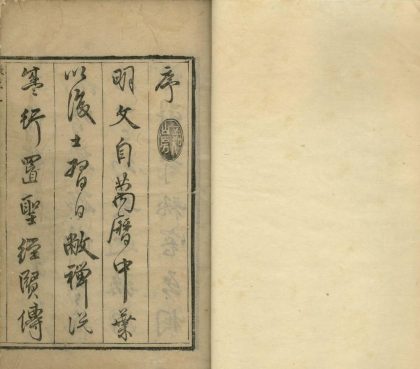 序
明文自萬曆中葉
以後士習日敝禪説
塞行置聖經賢傳